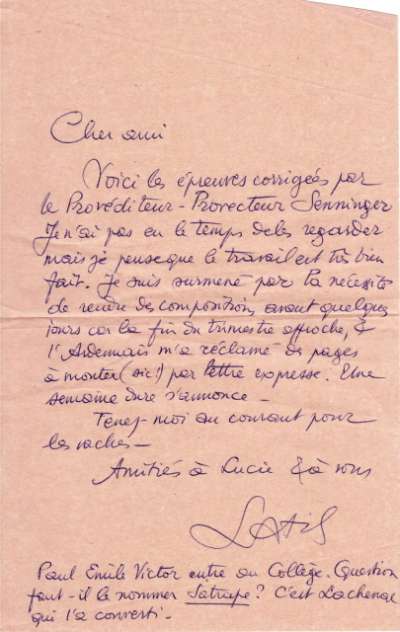 Cher ami
Voici les épreuves corrigées par
le Provéditeur-Provecteur Senninger
Je n'ai pas eu le temps de les regarder
mais je pense que le travail est très bien
fait. Je suis surmené par la nécessité
de rendre des compositions avant quelques
jours car la fin du trimestre approche, &
l'Ardennais m'a réclamé des pages
à monter (sic!) par lettre expresse. Une
semaine dure s'annonce -
Tenez-moi au courant pour
les vaches -
Amitiés à Lucie & à vous
Latis
Paul Emile Victor entre au Collège. Question
faut-il le nommer Satrape? C'est Lachenal
qui l'a converti.